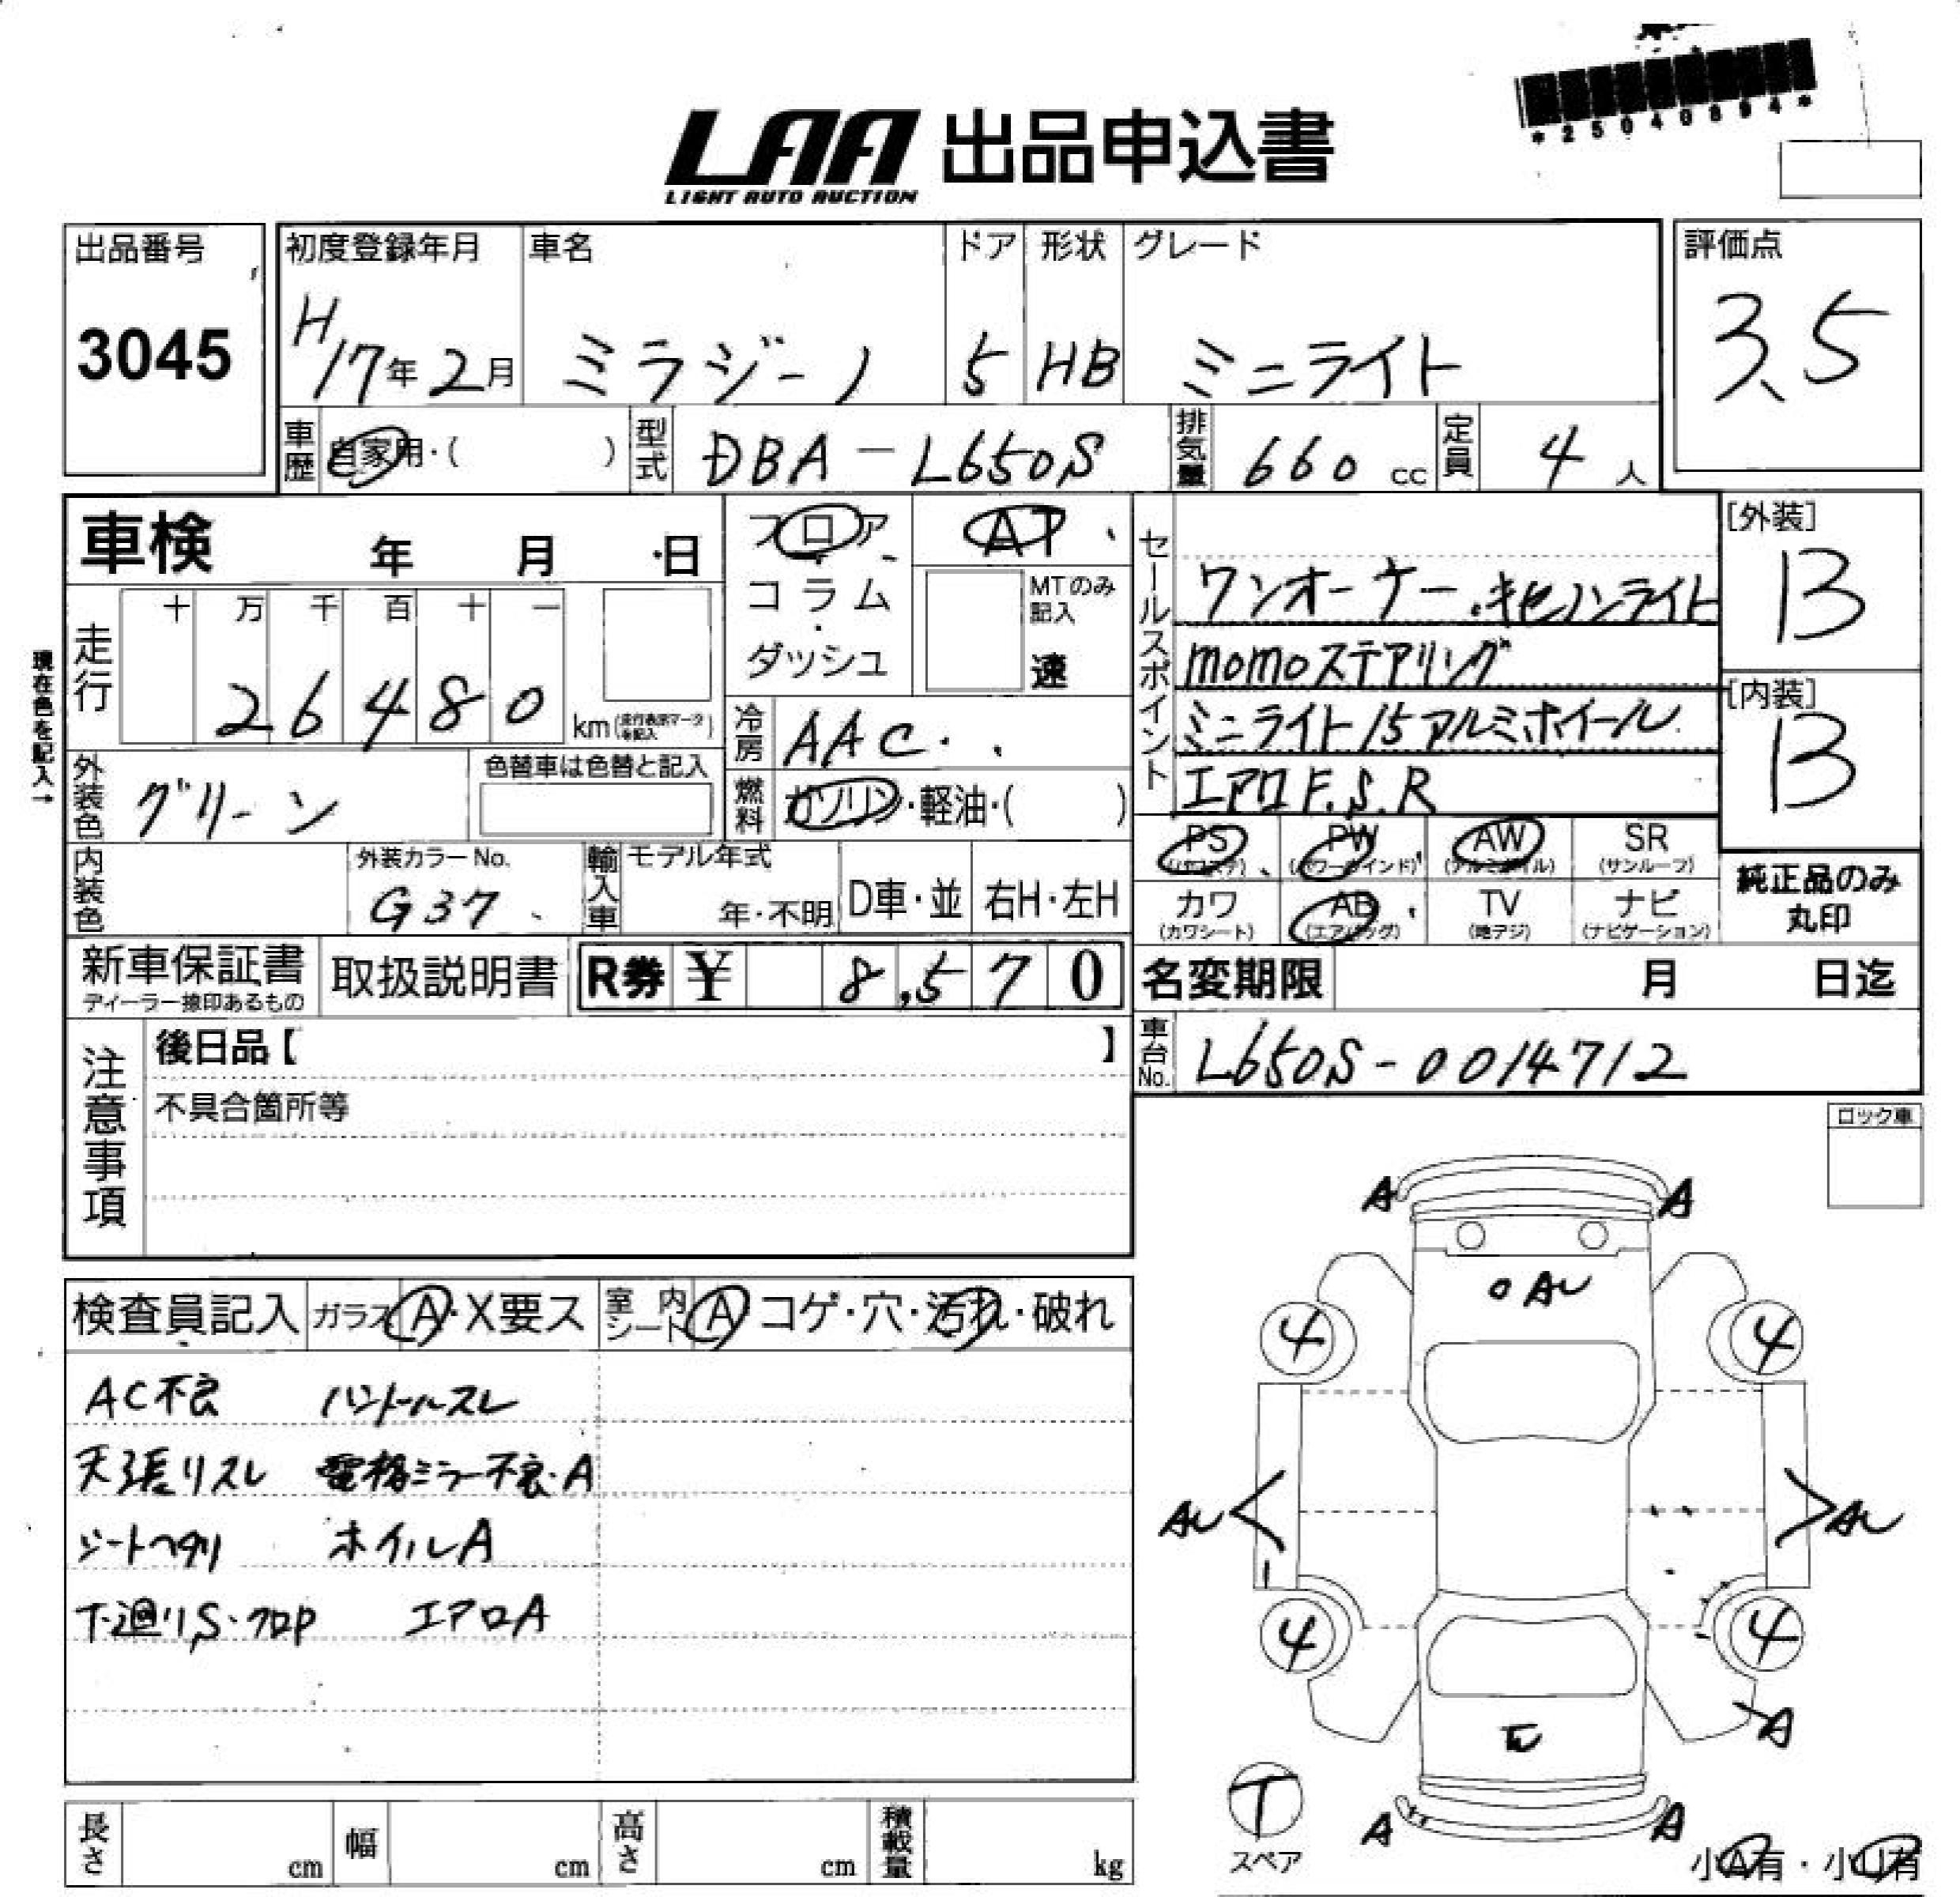 *25040894*
LAA 出品申込書
LIGHT AUTO AUCTION
出品番号 初度登録年月 車名 ドア 形状 グレード 評価点
3045 H17年2月 ミラジーノ 5 HB ミニライト 3.5
車歴 自家用・( ) 型式 DBA-L650S 排気量 660cc 定員 4人
車検 年 月 日 フロア・ AT [外装]
コラム MTのみ記入 セールスポイント ワンオーナー.キセノンライト 13
現在色を記入→ 走行 十 万 千 百 十 一
ダッシュ 速 momoステアリング
26480 km(走行表示マークを記入) 冷房 AAC ミニライト15アルミホイール [内装]
外装色 グリーン 色替車は色替と記入 燃料 ガソリン・軽油・( ) エアロF.S.R 13
PS(パワステ) PW(パワーウインド) AW(アルミホイル) SR(サンルーフ)
内装色 外装カラーNo. G37 輸入車 モデル年式 年・不明 D車・並 右H・左H カワ(カワシート) AB(エアバッグ) TV(地デジ) ナビ(ナビゲーション) 純正品のみ丸印
新車保証書 ディーラー捺印あるもの 取扱説明書 R券 ¥ 8,570 名変期限 月 日迄
注意事項 後日品【 】 車台No. L650S-0014712
不具合箇所等 ロック車
検査員記入 ガラス A・X要ス 室内シート A コゲ・穴・汚れ・破れ
AC不良 ハンドルスレ
天張リスレ 電格ミラー不良・A
シートヘタリ ホイルA
下廻りS・フロP エアロA
A A
AU
4 4
AU AU
4 4
A
T
スペア
A A
小A有・小U有
長さ cm 幅 cm 高さ cm 積載量 kg